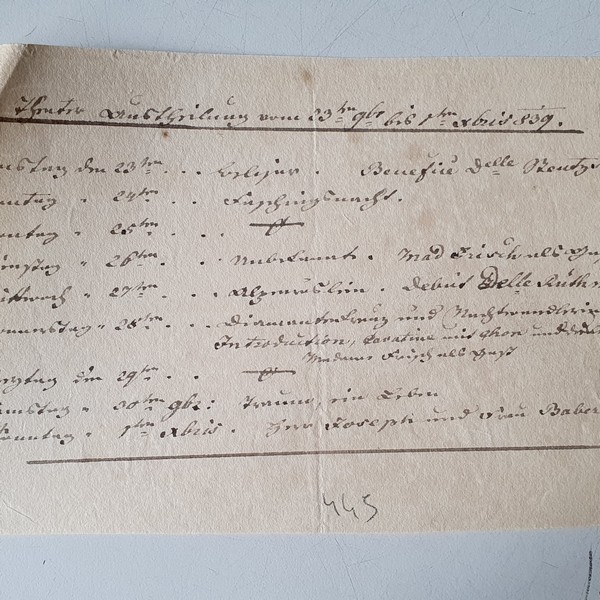 Theater Austheilung vom 23ten 9br bis 1ten Xbris 839.
mstag den 23ten . . Belisar . Benefice Delle
nntag " 24ten . . Faschingsnacht.
ontag " 25ten . .
ienstag " 26ten . . Unbekannte . Mad Frisch als
ittwoch " 27ten . . Alpenröslein . Debut Delle
onnerstag " 28ten . . Diamantenkreuz und Nachtwandlerin
Introduction, Cavatine mit Chor und
Madame Frisch als Gast
eytag den 29ten . .
mstag " 30ten 9br: Traum, ein Leben
onntag " 1ten Xbris . Herr Josephi und Frau
445